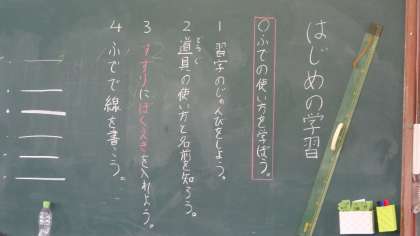 はじめの学習
○ふでの使い方を学ぼう。
1 習字のじゅんびをしよう。
2 道具の使い方と名前を知ろう。
どうぐ
3 すずりにぼくえきを入れよう。
4 ふでで線を書こう。